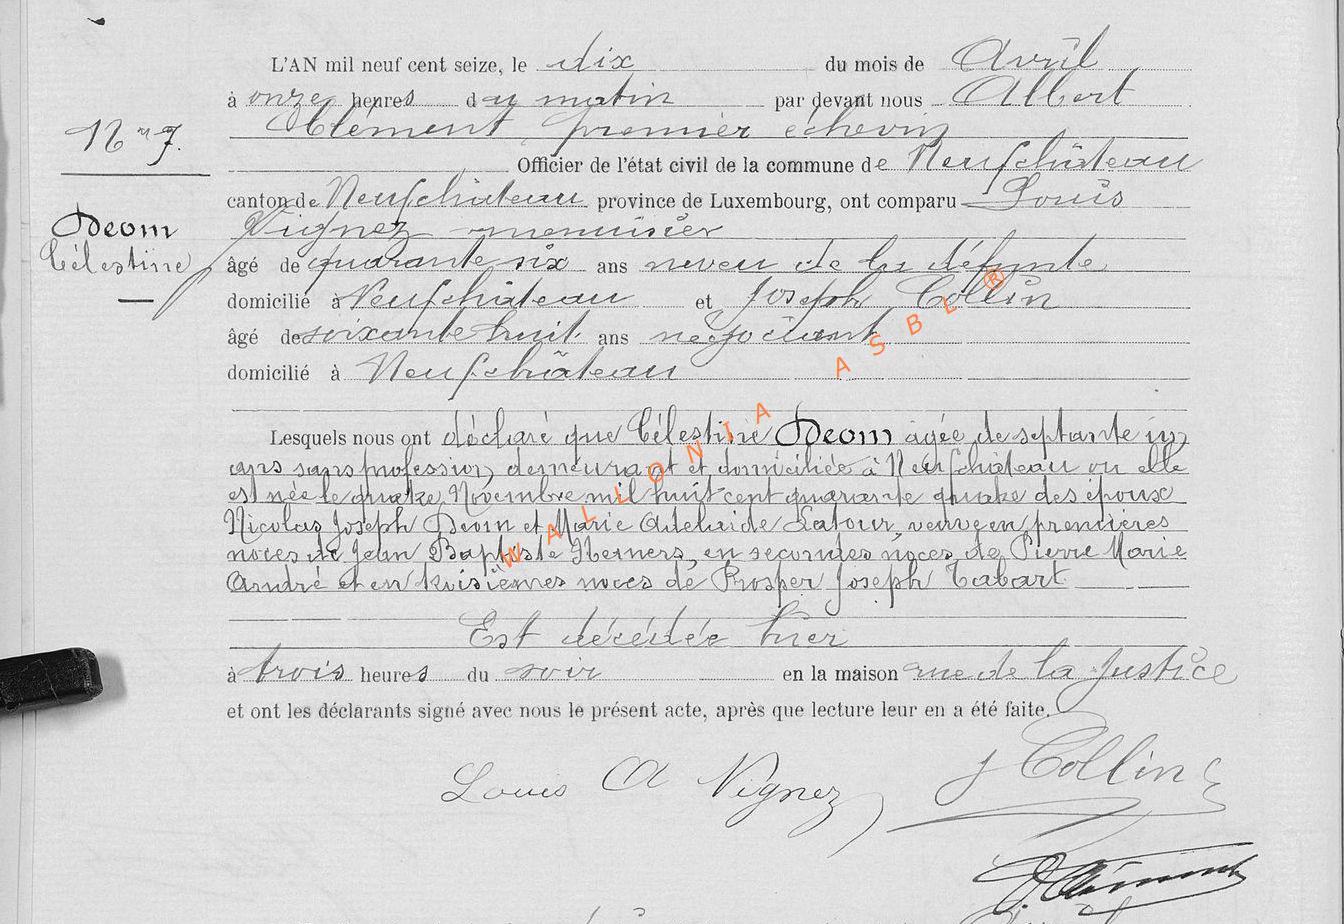 L'AN mil neuf cent seize, le dix du mois de Avril
à onze heures du matin par devant nous Albert
Clément, premier échevin
Officier de l'état civil de la commune de Neufchâteau
canton de Neufchâteau province de Luxembourg, ont comparu Louis
Vignez menuisier
âgé de quarante six ans neveu de la défunte
domicilié à Neufchâteau et Joseph Collin
âgé de soixante huit ans négociant
domicilié à Neufchâteau
N° 7.
Deom
Célestine
Lesquels nous ont déclaré que Célestine Deom agée de septante un
ans sans profession, demeurant et domiciliée à Neufchâteau ou elle
est née le quatre Novembre mil huit cent quarante quatre des époux
Nicolas Joseph Deom et Marie Adelaide Latour, veuve en premières
noces de Jean Baptiste Herners, en secondes noces de Pierre Marie
André et en troisièmes noces de Prosper Joseph Tabart
Est décédée hier
à trois heures du soir en la maison rue de la Justice
et ont les déclarants signé avec nous le présent acte, après que lecture leur en a été faite.
Louis A Vignez
J Collin
A Clément
WALLONIA ASBL ®